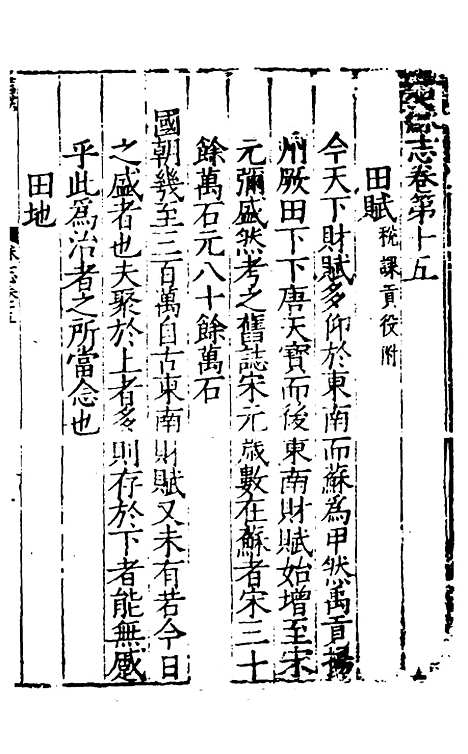 姑蘇志卷第十五
田賦 稅課貢役附
今天下財賦多仰於東南而蘇爲甲然禹貢揚
州厥田下下唐天寶而後東南財賦始增至宋
元彌盛然考之舊誌宋元歲數在蘇者宋三十
餘萬石元八十餘萬石
國朝幾至三百萬自古東南財賦又未有若今日
之盛者也夫聚於上者多則存於下者能無慼
乎此爲治者之所當念也
田地